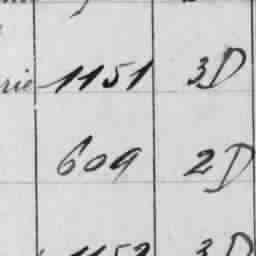 rie 1151 3D
609 2D
1152 3D